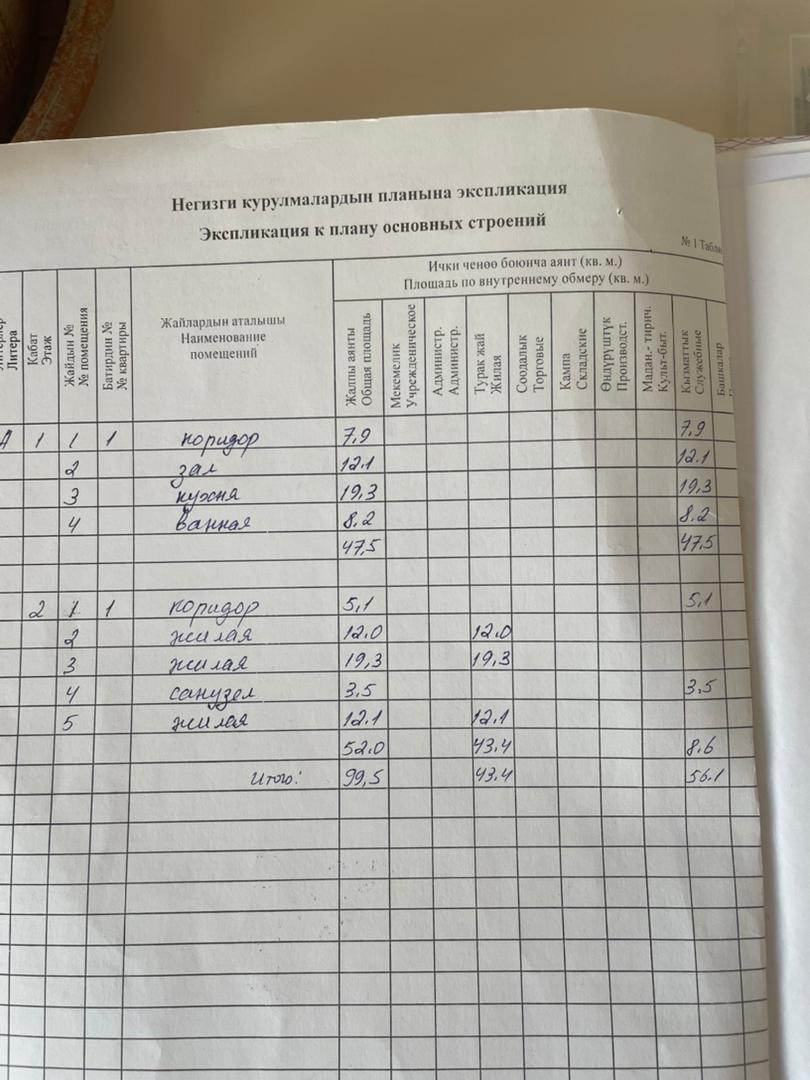 Негизги курулмалардын планына экспликация
Экспликация к плану основных строений
№ 1 Табли
Литера
Кабат Этаж
Жайдын № № помещения
Батирдин № № квартиры
Жайлардын аталышы Наименование помещений
Ички ченөө боюнча аянт (кв. м.)
Площадь по внутреннему обмеру (кв. м.)
Жалпы аянты Общая площадь
Мекемелик Учрежденическое
Администр. Администр.
Турак жай Жилая
Соодалык Торговые
Кампа Складские
Өндүрүштүк Производст.
Мадан.- тирич. Культ-быт.
Кызматтык Служебные
Башкалар
А 1 1 1 коридор 7,9 7,9
2 зал 12.1 12.1
3 кухня 19,3 19,3
4 ванная 8.2 8.2
47,5 47,5
2 1 1 коридор 5,1 5,1
2 жилая 12.0 12.0
3 жилая 19,3 19,3
4 санузел 3,5 3,5
5 жилая 12.1 12.1
52.0 43.4 8.6
Итого: 99,5 43.4 56.1